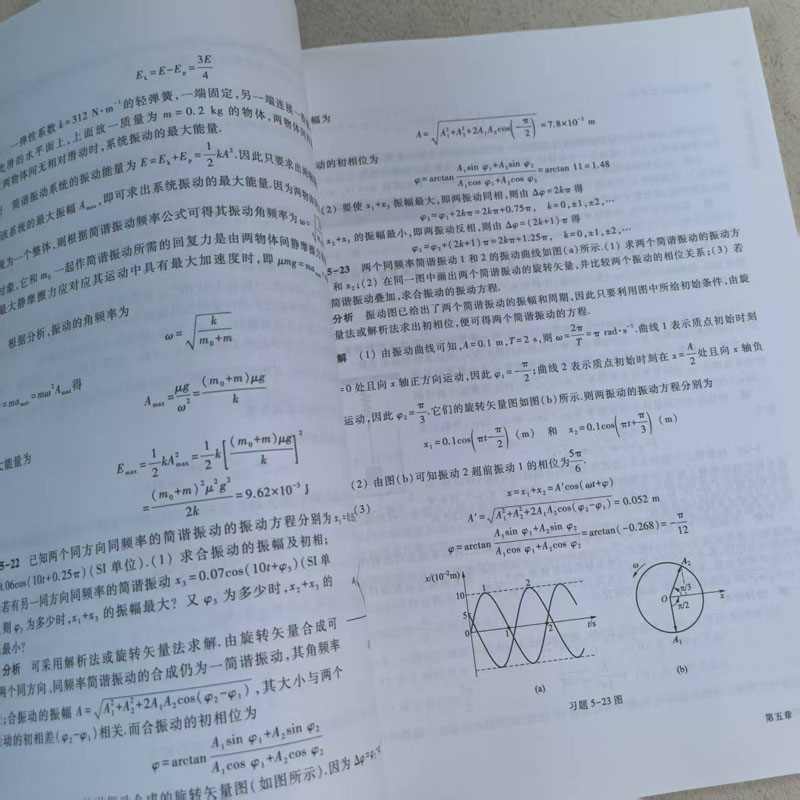 E_k=E-E_p=3E/4
一弹性系数 k=312 N·m⁻¹的轻弹簧,一端固定,另一端连接一
光滑的水平面上,上面放一质量为 m=0.2 kg 的物体,两物体间
两物体间无相对滑动时,系统振动的最大能量.
简谐振动系统的振动能量为 E=E_k+E_p=1/2kA².因此只要求出两物
该系统的最大振幅 A_max,即可求出系统振动的最大能量.因为两物体
视为一个整体,则根据简谐振动频率公式可得其振动角频率为 ω=
对象,它和 m₀ 一起作简谐振动所需的回复力是由两物体间静摩擦力
最大静摩擦力应对应其运动中具有最大加速度时,即 μmg=ma_max
根据分析,振动的角频率为
ω=√(k/(m₀+m))
=ma_max=mω²A_max得
A_max=μg/ω²=(m₀+m)μg/k
大能量为
E_max=1/2kA²_max=1/2k[(m₀+m)μg/k]²
=(m₀+m)²μ²g²/2k=9.62×10⁻³ J
5-22 已知两个同方向同频率的简谐振动的振动方程分别为 x₁=
0.06cos(10t+0.25π)(SI 单位).(1) 求合振动的振幅及初相;
若有另一同方向同频率的简谐振动 x₃=0.07cos(10t+φ₃)(SI 单
则 φ₃ 为多少时,x₁+x₃ 的振幅最大? 又 φ₃ 为多少时,x₂+x₃ 的
最小?
分析 可采用解析法或旋转矢量法求解.由旋转矢量合成可
两个同方向、同频率简谐振动的合成仍为一简谐振动,其角频率
;合振动的振幅 A=√(A₁²+A₂²+2A₁A₂cos(φ₂-φ₁)),其大小与两个
动的初相差(φ₂-φ₁)相关.而合振动的初相位为
φ=arctan (A₁sin φ₁+A₂sin φ₂)/(A₁cos φ₁+A₂cos φ₂)
合成的旋转矢量图(如图所示).因为 Δφ=φ
幅为
A=√(A₁²+A₂²+2A₁A₂cos(-π/2))=7.8×10⁻² m
动的初相位为
φ=arctan (A₁sin φ₁+A₂sin φ₂)/(A₁cos φ₁+A₂cos φ₂)=arctan 11=1.48
(2) 要使 x₁+x₃ 振幅最大,即两振动同相,则由 Δφ=2kπ 得
φ₃=φ₁+2kπ=2kπ+0.75π, k=0,±1,±2,…
x₂+x₃ 的振幅最小,即两振动反相,则由 Δφ=(2k+1)π 得
φ₃=φ₂+(2k+1)π=2kπ+1.25π, k=0,±1,±2,…
5-23 两个同频率简谐振动 1 和 2 的振动曲线如图(a)所示.(1) 求两个简谐振动的振动方
和 x₂;(2) 在同一图中画出两个简谐振动的旋转矢量,并比较两个振动的相位关系;(3) 若
简谐振动叠加,求合振动的振动方程.
分析 振动图已给出了两个简谐振动的振幅和周期,因此只要利用图中所给初始条件,由旋
量法或解析法求出初相位,便可得两个简谐振动的方程.
解 (1) 由振动曲线可知,A=0.1 m,T=2 s,则 ω=2π/T=π rad·s⁻¹.曲线 1 表示质点初始时刻
=0 处且向 x 轴正方向运动,因此 φ₁=-π/2;曲线 2 表示质点初始时刻在 x=A/2处且向 x 轴负
运动,因此 φ₂=π/3.它们的旋转矢量图如图(b)所示.则两振动的振动方程分别为
x₁=0.1cos(πt-π/2) (m) 和 x₂=0.1cos(πt+π/3) (m)
(2) 由图(b)可知振动 2 超前振动 1 的相位为5π/6.
(3)
x=x₁+x₂=A'cos(ωt+φ)
A'=√(A₁²+A₂²+2A₁A₂cos(φ₂-φ₁))=0.052 m
φ=arctan (A₁sin φ₁+A₂sin φ₂)/(A₁cos φ₁+A₂cos φ₂)=arctan(-0.268)=-π/12
x/(10⁻²m)
10
5
0
1
2
1
2
t/s
(a)
ω
A₂
π/3
O
π/2
x
A₁
(b)
习题 5-23 图
第五章